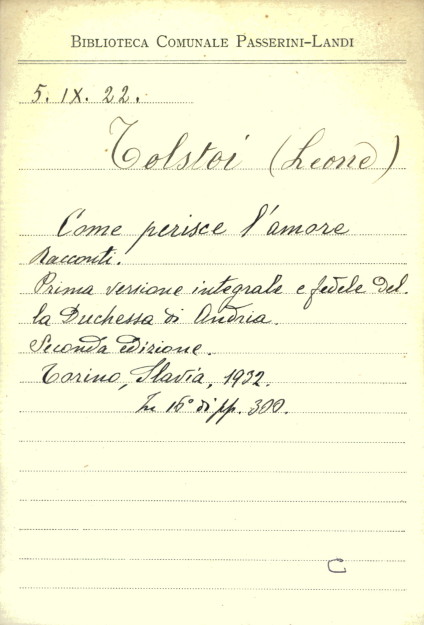 BIBLIOTECA COMUNALE PASSERINI-LANDI
5. IX. 22.
Tolstoi (Leone)
Come perisce l'amore
Racconti.
Prima versione integrale e fedele del-
la Duchessa di Andria.
Seconda edizione.
Torino, Slavia, 1932.
In 16° di pp. 300.
C